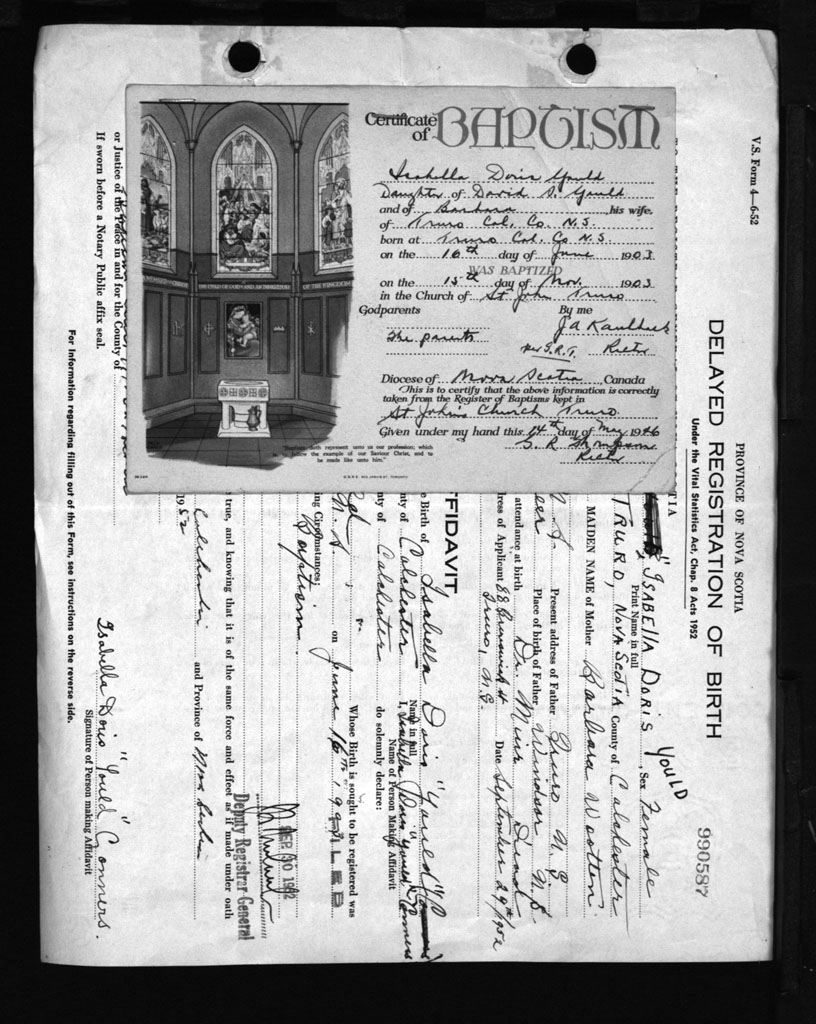 Certificate of BAPTISM
Isabella Doris Yould
Daughter of David S. Yould
and of Barbara , his wife,
of Truro Col. Co. N.S.
born at Truro Col. Co N.S.
on the 16th day of June 1903
WAS BAPTIZED
on the 15th day of Nov. 1903
in the Church of St. John Truro
Godparents By me
The parents J A Kaulbach
per S.R.T. Rector
Diocese of Nova Scotia , Canada
This is to certify that the above information is correctly
taken from the Register of Baptisms kept in
St John's Church Truro
Given under my hand this 14th day of May 1946
S. R.
Rector
represent unto us our profession; which
follow the example of our Saviour Christ, and to
be made like unto him."
V.S. Form 4—6-52
PROVINCE OF NOVA SCOTIA
DELAYED REGISTRATION OF BIRTH
Under the Vital Statistics Act, Chap. 8 Acts 1952
990587
YOULD
"ISABELLA DORIS , Sex Female
Print Name in full
TRURO, NOVA SCOTIA County of Colchester
MAIDEN NAME of Mother Barbara Wootten
N.S. Present address of Father Truro N.S.
Place of birth of Father Windsor N.S.
attendance at birth Dr. Muir Dead
ress of Applicant 88 Brunswick St Date September 29th/1952
Truro, N.S.
FIDAVIT
e Birth of Isabella Doris "Yould"
Name in full
nty of Colchester I, Isabella Doris "Yould" Conners
Name of Person Making Affidavit
nty of Colchester do solemnly declare:
Whose Birth is sought to be registered was
N.S. on June 16th
FILED
ng Circumstances:
Baptism
SEP 30 1952
Deputy Registrar General
true, and knowing that it is of the same force and effect as if made under oath
Colchester and Province of Nova Scotia
1952
Isabella Doris "Yould" Conners.
Signature of Person making Affidavit
or Justice of the Peace in and for the County of
If sworn before a Notary Public affix seal.
For information regarding filling out of this Form, see instructions on the reverse side.